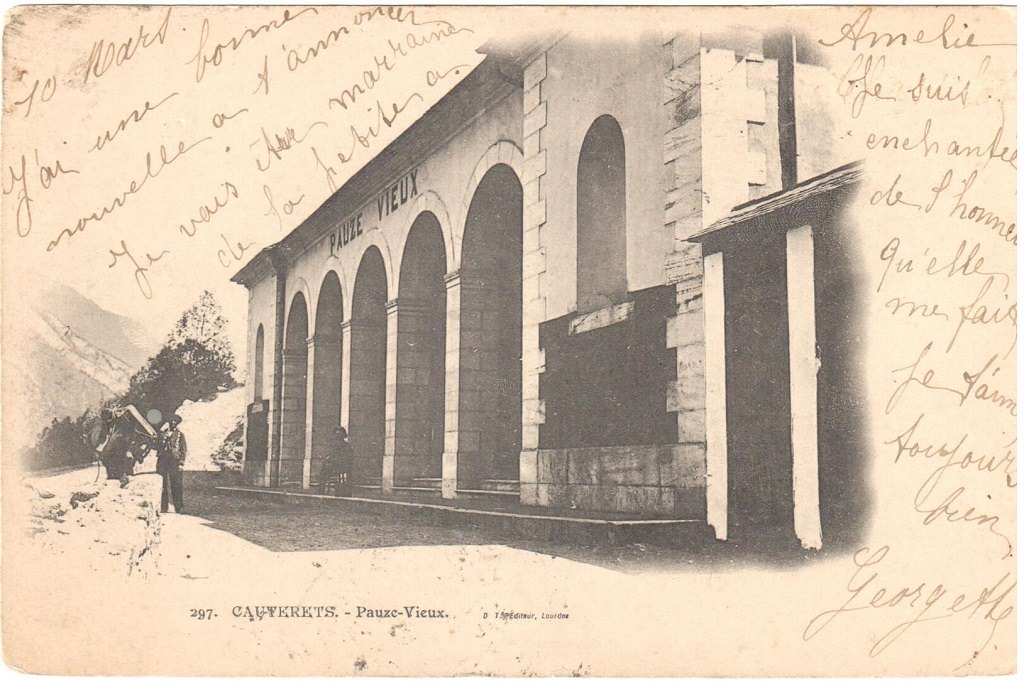 10 Mars.
J'ai une bonne
nouvelle a t'annoncer
Je vais être marraine
de la petite a
Amelie
Je suis
enchantée
de l'honneur
qu'elle
me fait
Je t'aime
toujours
bien
Georgette
PAUZE VIEUX
297. CAUTERETS. - Pauze-Vieux.
D T. Editeur, Lourdes